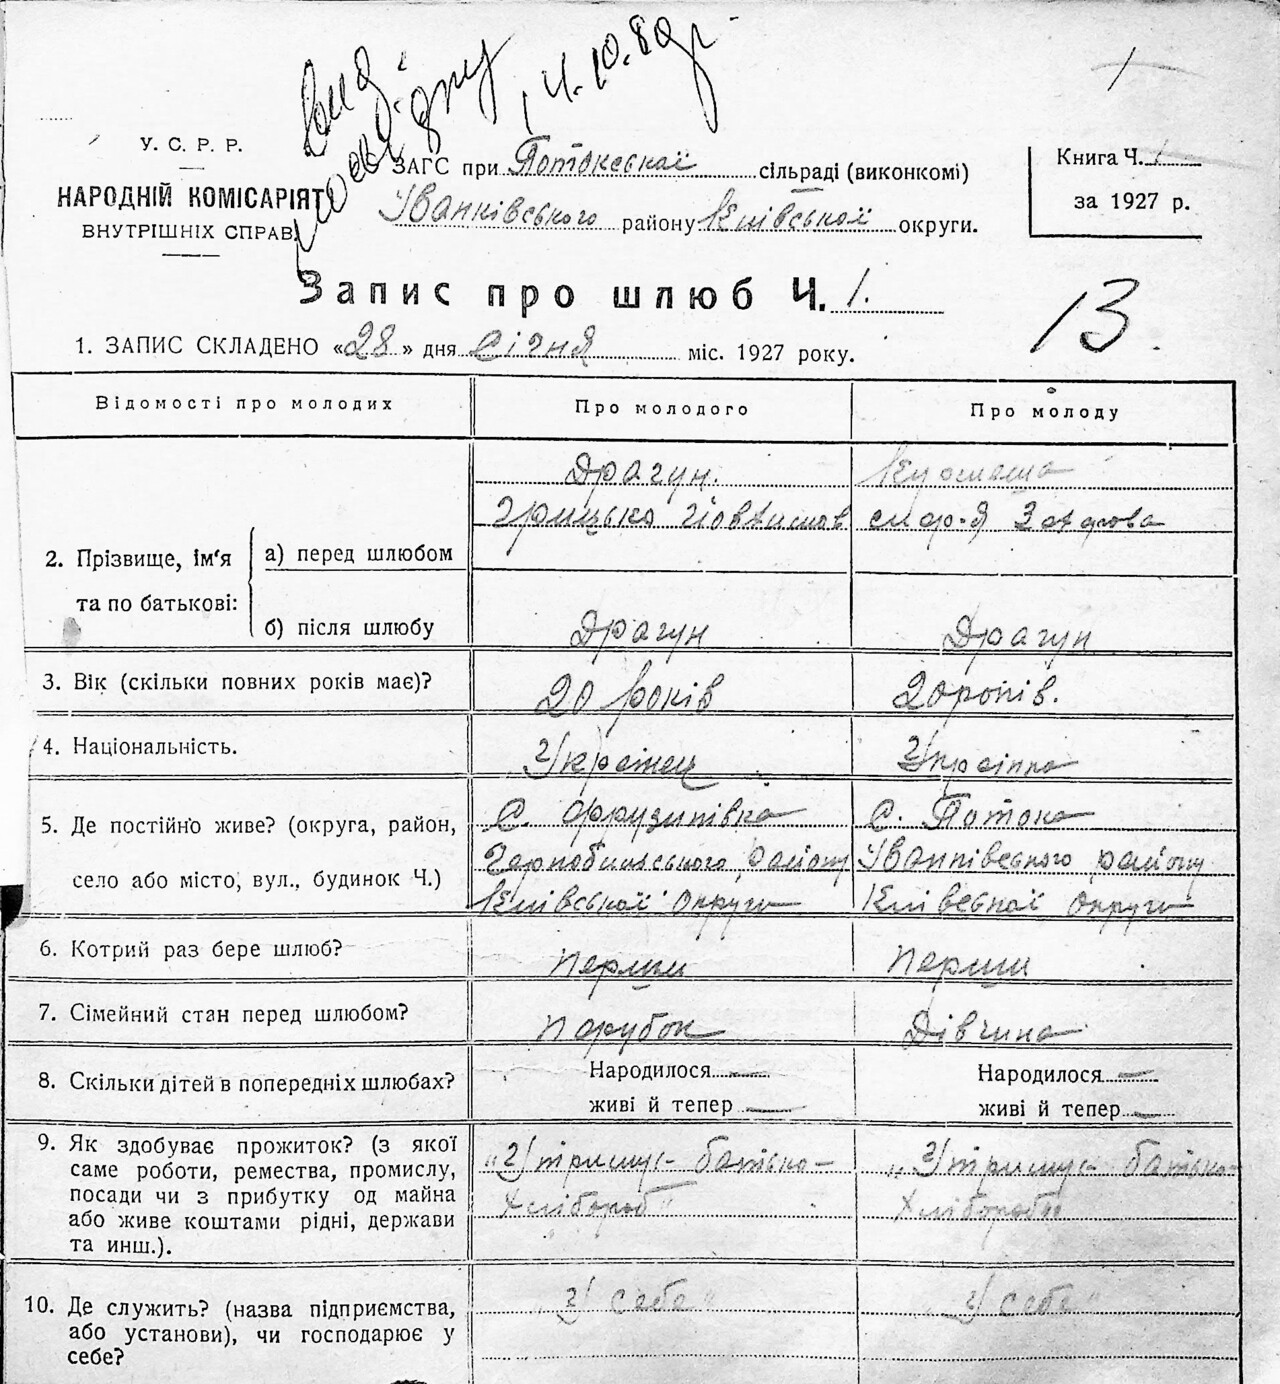 14.10.80р
У. С. Р. Р.
НАРОДНІЙ КОМІСАРІЯТ
ВНУТРІШНІХ СПРАВ.
ЗАГС при Потокськой сільраді (виконкомі)
Іванківського району Київськой округи.
Книга Ч. 1
за 1927 р.
Запис про шлюб Ч. 1.
13.
1. ЗАПИС СКЛАДЕНО «28» дня січня міс. 1927 року.
Відомості про молодих
Про молодого
Про молоду
2. Прізвище, ім'я та по батькові:
а) перед шлюбом
Драгун.
Грицько
б) після шлюбу
Драгун
Драгун
3. Вік (скільки повних років має)?
20 років
20 років.
4. Національність.
Українец
Українка
5. Де постійно живе? (округа, район,
село або місто, вул., будинок Ч.)
С.
Чорнобильського району
Київськой Округи
С. Потока
Іванківського району
Київськой Округи
6. Котрий раз бере шлюб?
перши
перши
7. Сімейний стан перед шлюбом?
парубок
Дівчина
8. Скільки дітей в попередніх шлюбах?
Народилося —
живі й тепер —
Народилося —
живі й тепер —
9. Як здобуває прожиток? (з якої
саме роботи, ремества, промислу,
посади чи з прибутку од майна
або живе коштами рідні, держави
та инш.).
„Утримує батько-
хлібороб"
„Утримує батько-
хлібороб"
10. Де служить? (назва підприємства,
або установи), чи господарює у
себе?
„У себе"
„У себе"